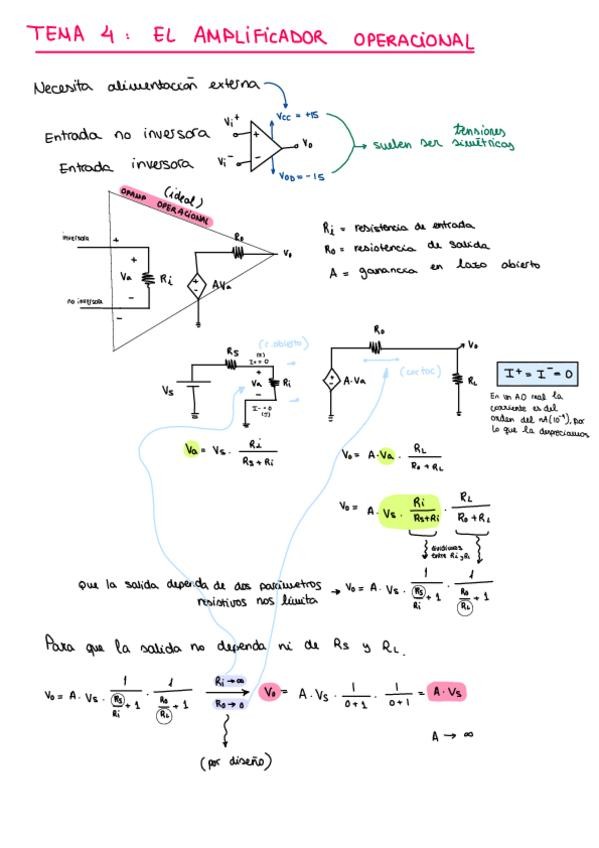 TEMA 4: EL AMPLIFICADOR OPERACIONAL
Necesita alimentación externa
Vcc = +15
Vi+
Entrada no inversora
+
Vo
tensiones
suelen ser simétricas
Entrada inversora
Vi-
-
VDD = -15
(ideal)
OPAMP OPERACIONAL
inversora
+
+
Va
Ri
-
no inversora
-
Ro
Vo
+
-
AVa
Ri = resistencia de entrada
Ro = resistencia de salida
A = ganancia en lazo abierto
(c. abierto)
Rs
I+=0
+
Va
Ri
-
I-=0
Vs
Ro
Vo
(cortoc)
+
-
A·Va
RL
I+ = I- = 0
En un AO real la
corriente es del
orden del nA (10-9), por
lo que la despreciamos
Va = Vs · Ri / Rs + Ri
Vo = A·Va · RL / Ro + RL
Vo = A·Vs · Ri / Rs+Ri · RL / Ro + RL
dividimos
entre Ri y RL
Que la salida dependa de dos parámetros
resistivos nos limita
→ Vo = A · Vs · 1 / Rs/Ri + 1 · 1 / Ro/RL + 1
Para que la salida no dependa ni de Rs y RL.
Vo = A · Vs · 1 / Rs/Ri + 1 · 1 / Ro/RL + 1
Ri → ∞
Ro → 0
Vo = A · Vs · 1 / 0+1 · 1 / 0+1 = A · Vs
A → ∞
(por diseño)